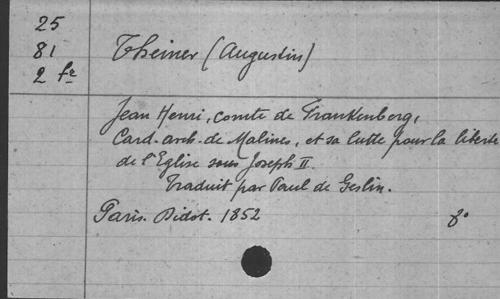 25
81
2 fe
Theiner (Augustin)
Jean Henri, comte de Frankenberg,
Card. arch. de Malines, et sa lutte pour la liberté
de l'Eglise sous Joseph II.
Traduit par Paul de Geslin.
Paris. Didot. 1852 8°